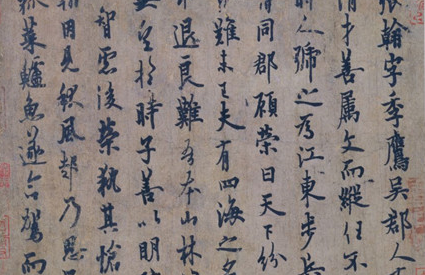 張翰字季鷹吳郡人
清才善屬文而縱任不
時人號之為江東步兵
謂同郡顧榮曰天下紛
難未已夫有四海之名
退良難吾本山林
無望於時子善以明防
智慮後榮執其愴
翰因見秋風起乃思
菰菜鱸魚遂命駕而